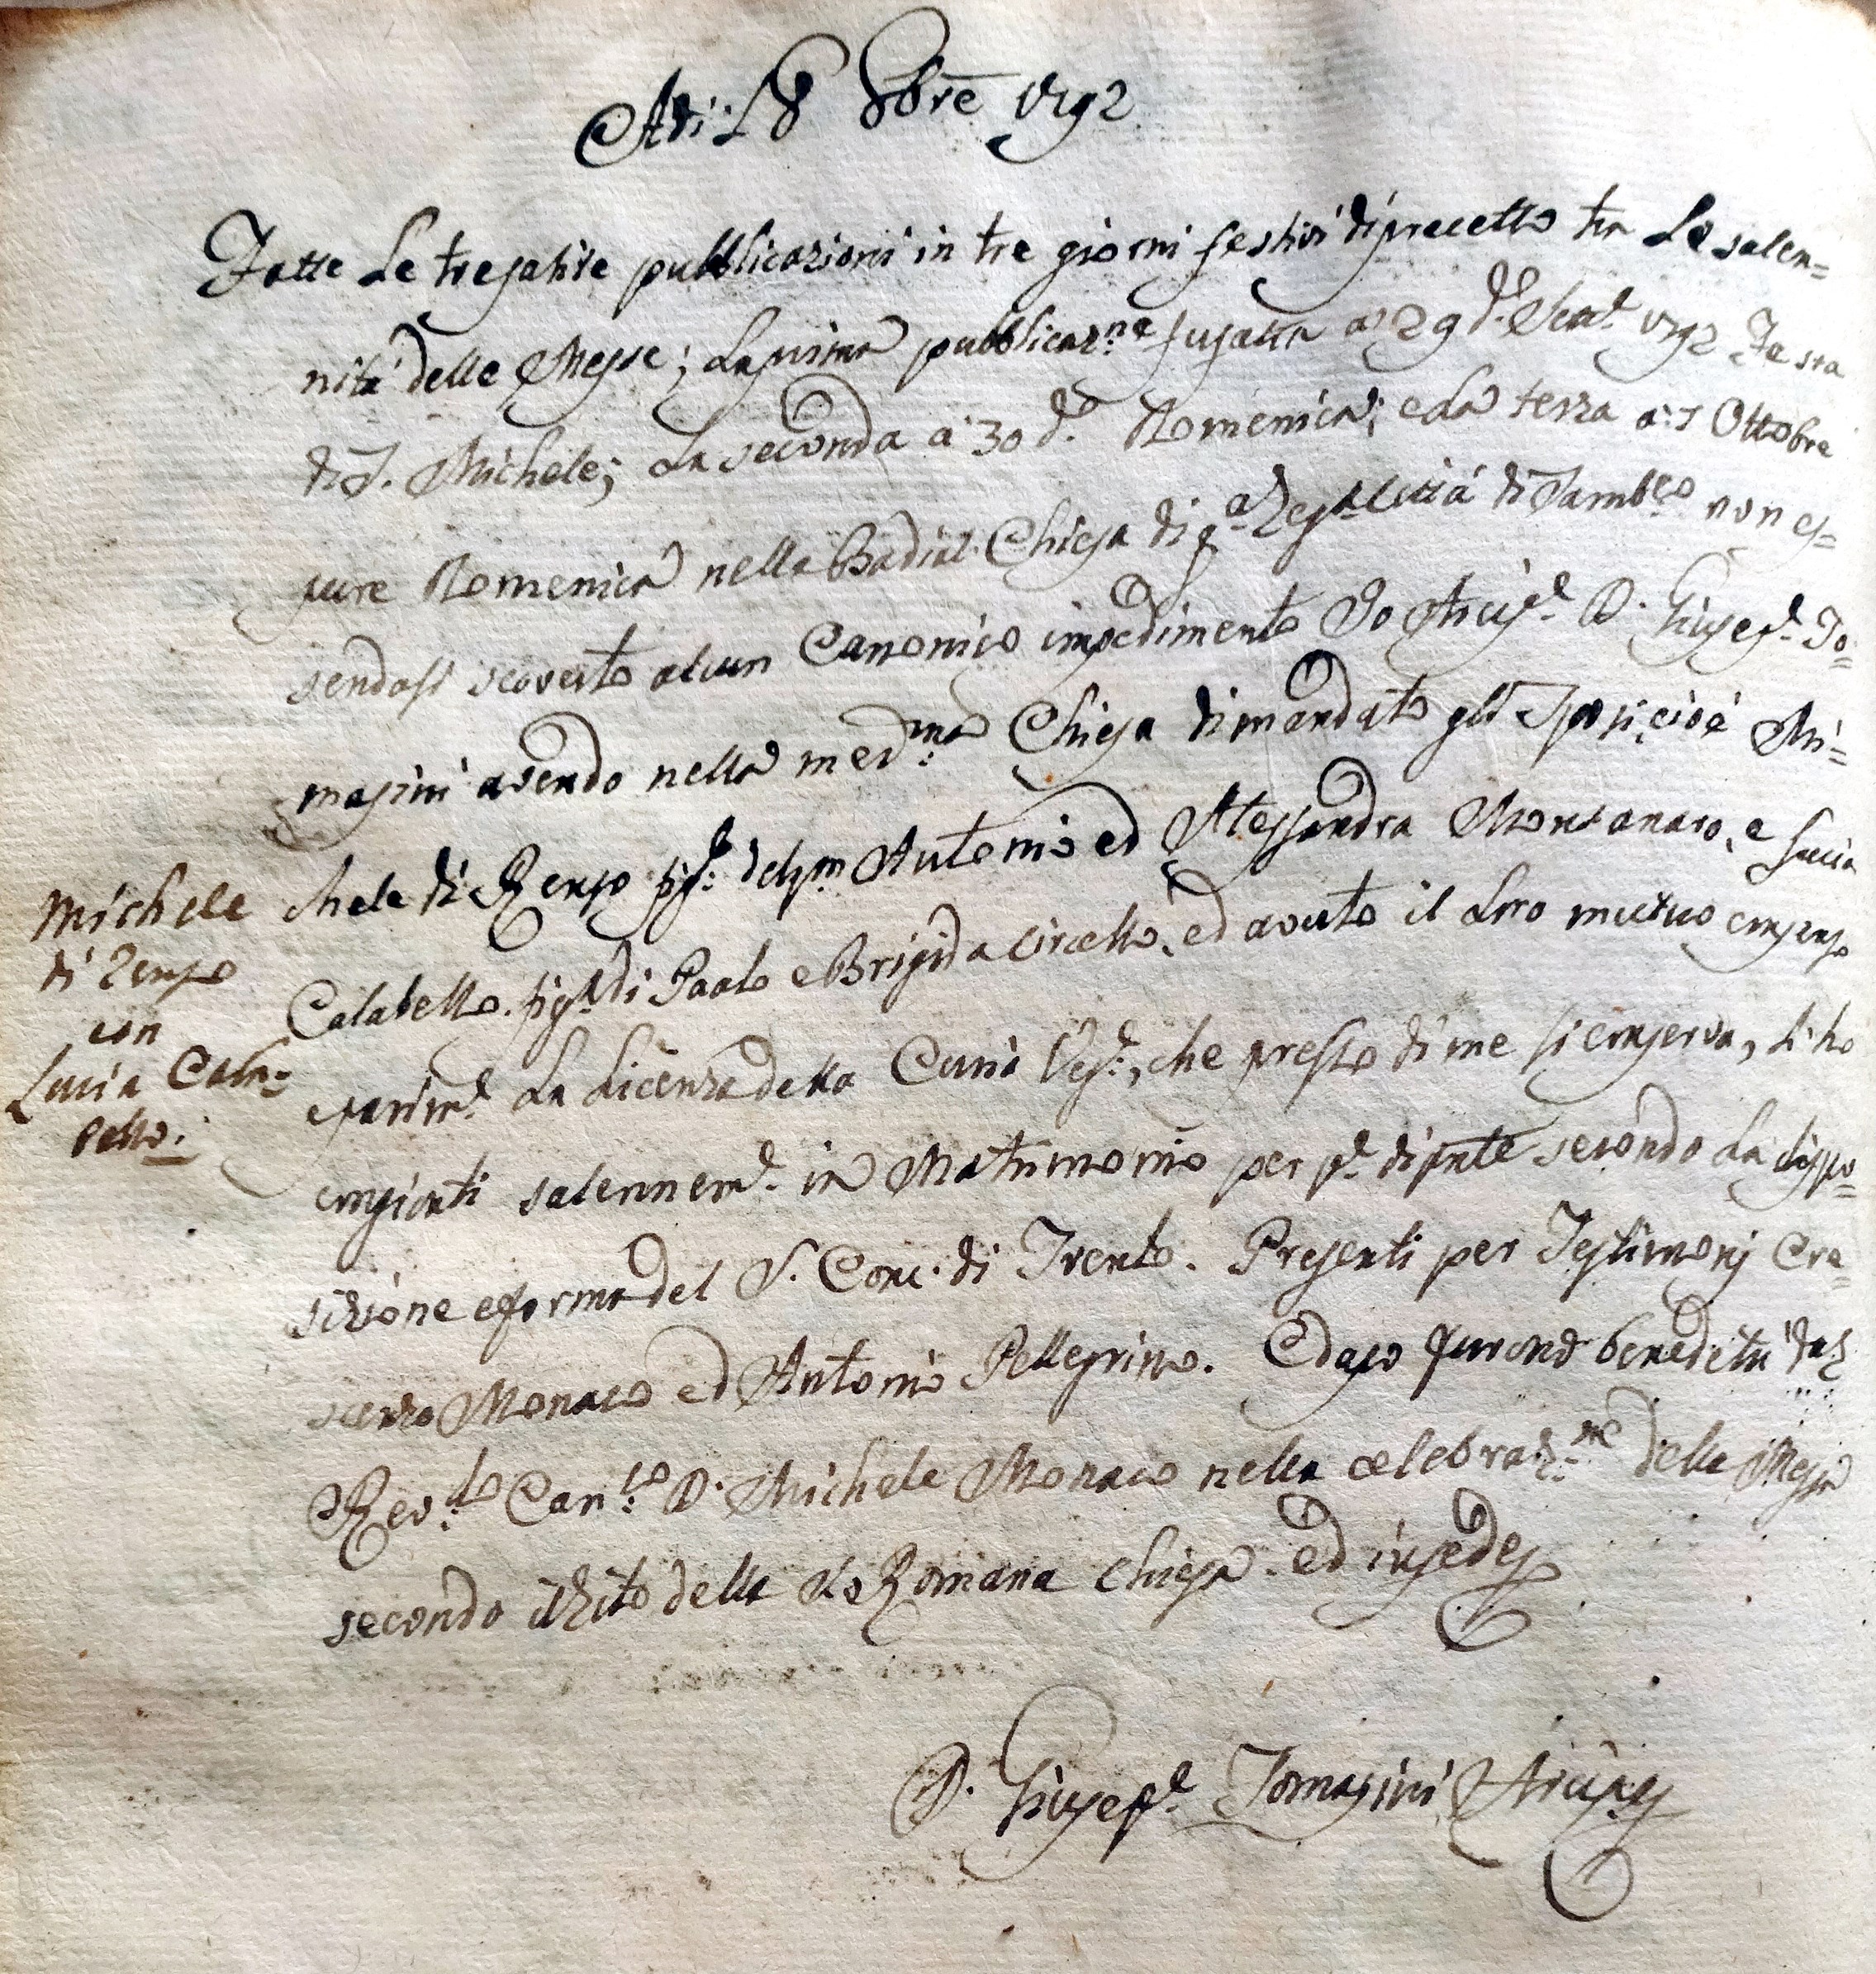 Adi: 18 8bre 1792
Fatte le tre solite pubblicazioni in tre giorni festivi di precetto tra le solen=
nità delle Messe; la prima pubblicaz.ne fu fatta a' 29 d. 1792 Festa
di S. Michele; la seconda a' 30 d.o Domenica; e la terza a' 7 Ottobre
pure Domenica nella Badial Chiesa di q.a Reg.l Città di Samb.co non es=
sendosi scoverto alcun Canonico impedimento Io Arcip.e D. Giusep.e To=
masini avendo nella med.ma Chiesa dimandato gli Sposi, cioè Mi=
chele di Renzo fig.o del qm Antonio ed Alessandra Montanaro, e Lucia
Calabello fig.a di Paolo e Brigida Circello, ed avuto il loro mutuo consenso
e parim.e la licenza della Curia Ves.e, che presso di me si conserva, li ho
congionti solennem.e in Matrimonio per p.e di pnte secondo la dispo=
sizione e forma del S. Conc. di Trento. Presenti per Testimonj Cre=
scenzo Monaco ed Antonio Pellegrino. E dopo furono benedetti dal
Rev.do Can.co D. Michele Monaco nella celebraz.ne della Messa
secondo il Rito della Romana Chiesa. ed in fede
D. Giusep.e Tomasini Arcip.e
Michele
di Renzo
con
Lucia Cala=
bello.